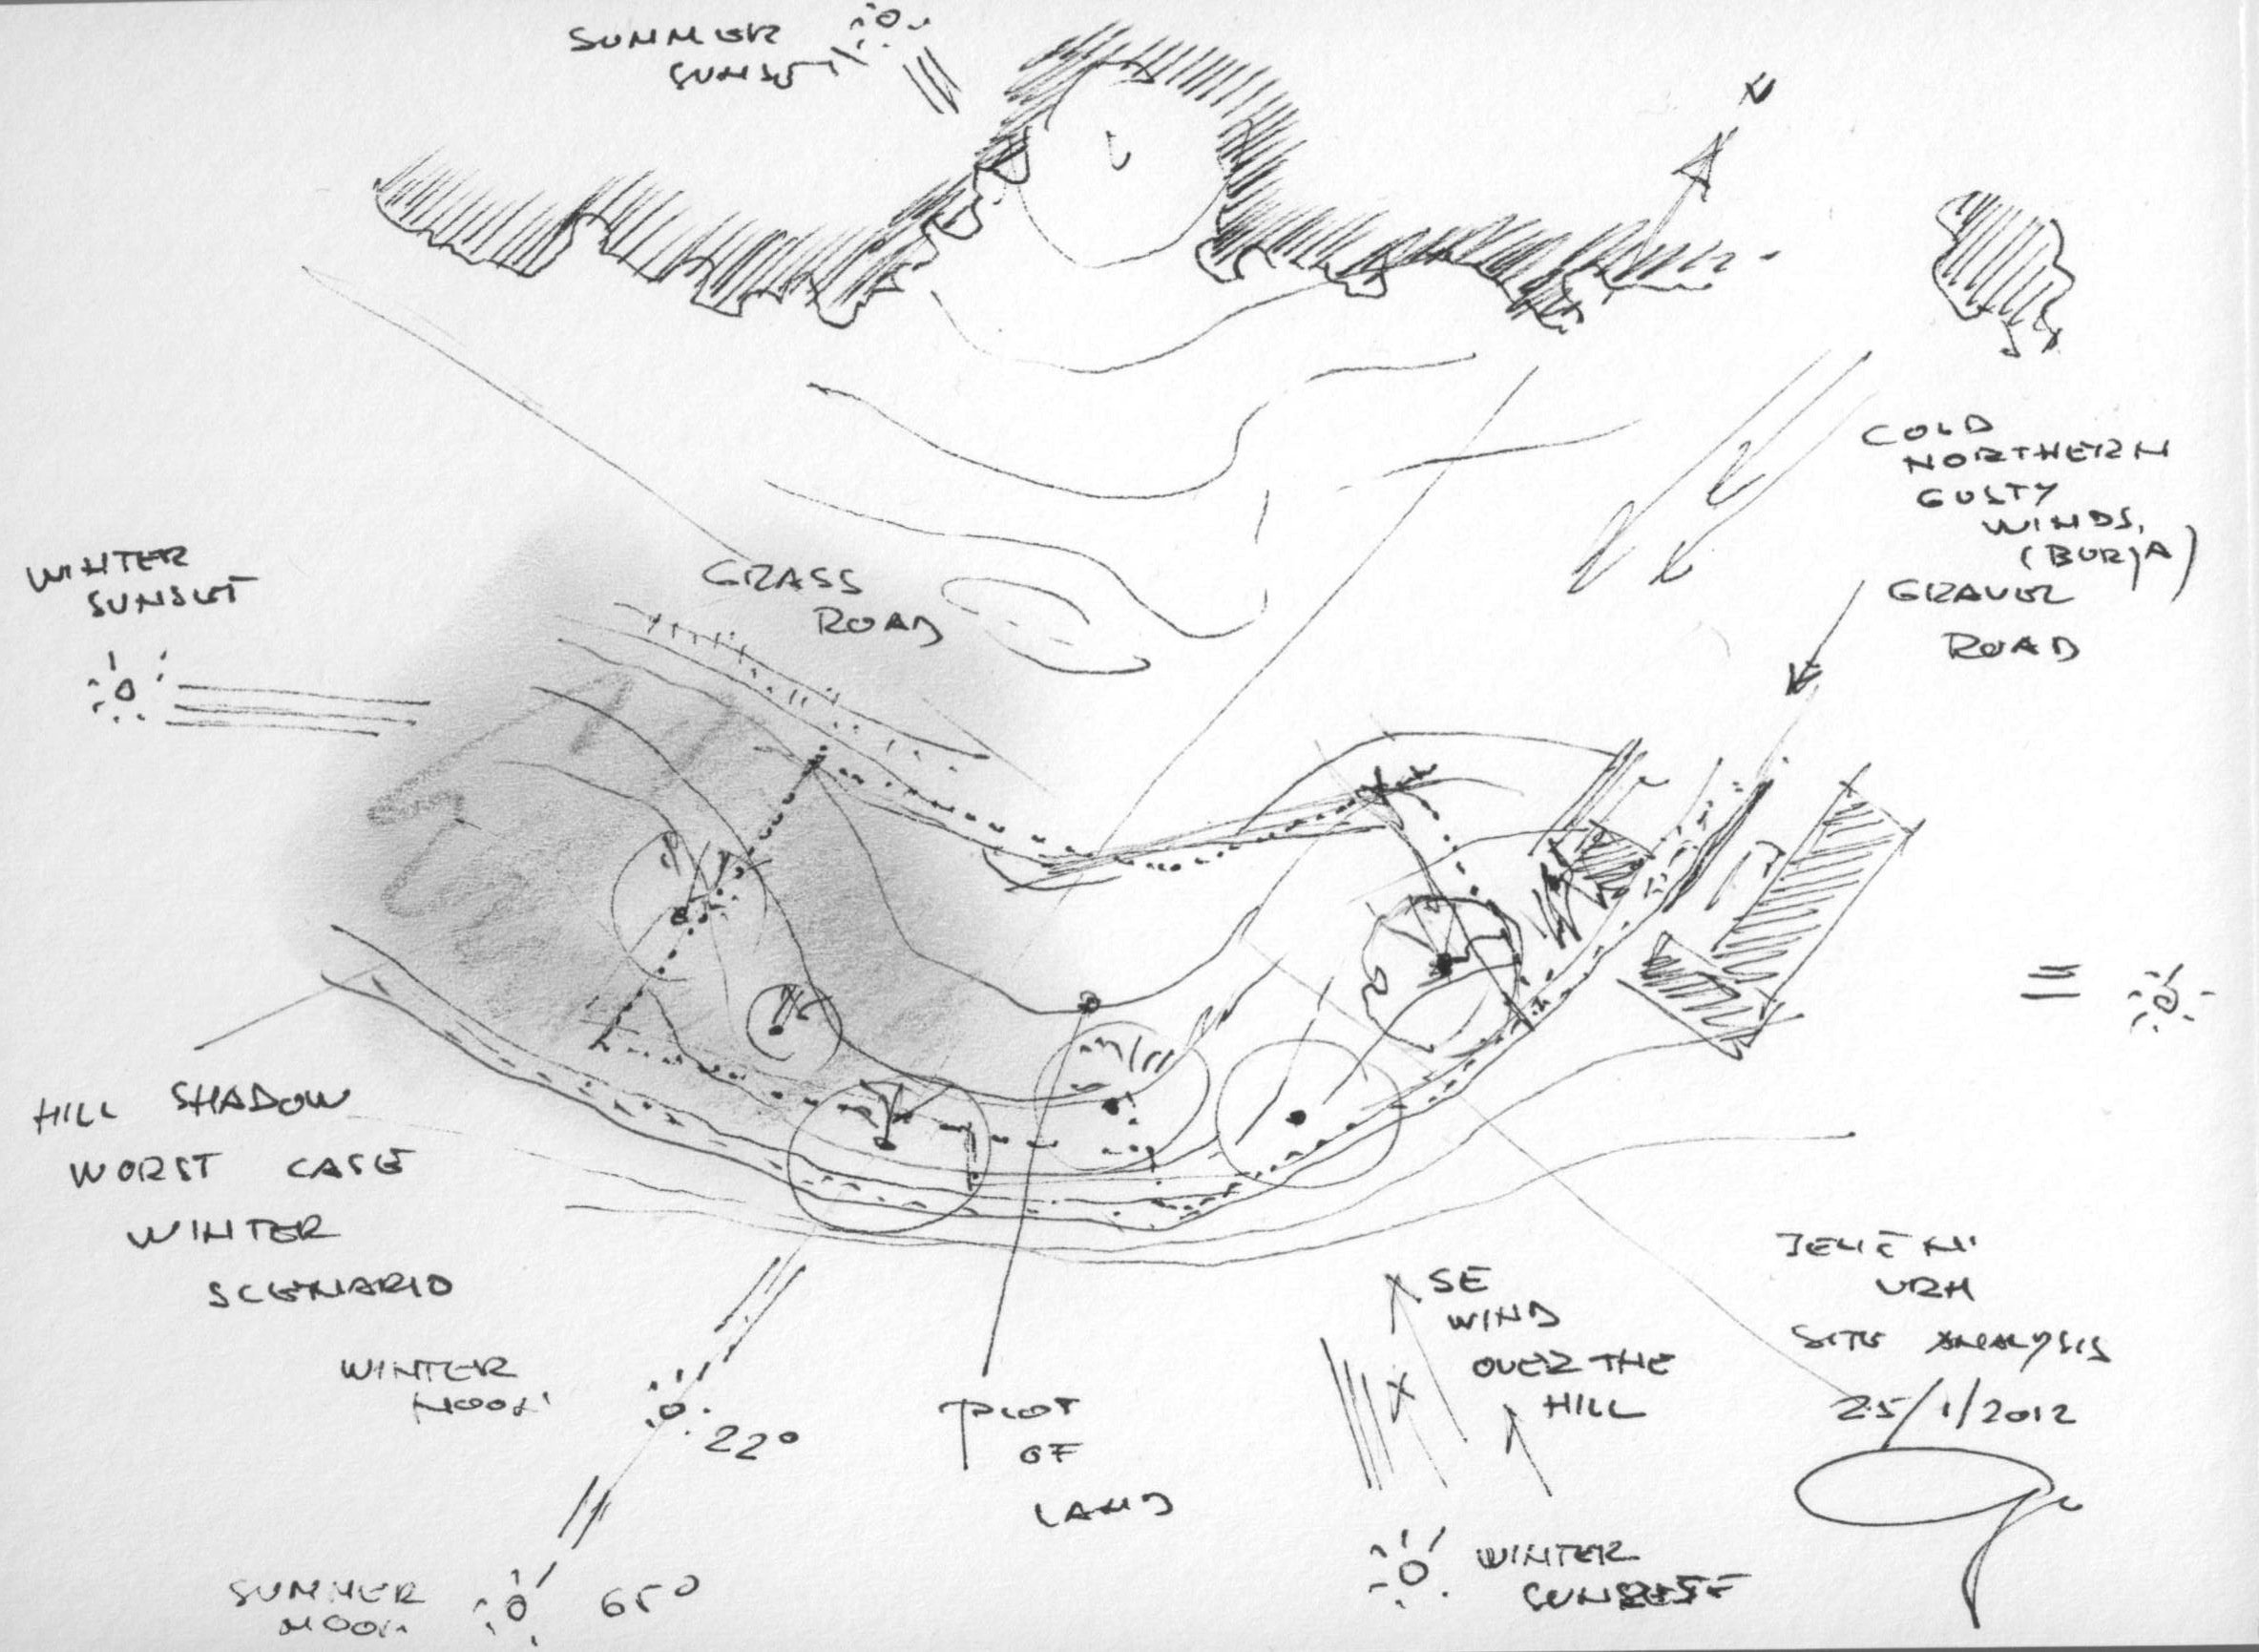 SUMMER
SUNSET
N
COLD
NORTHERN
GUSTY
WINDS,
(BURJA)
GRAVEL
ROAD
GRASS
ROAD
WINTER
SUNSET
HILL SHADOW
WORST CASE
WINTER
SCENARIO
WINTER
NOON
22°
SUMMER
NOON
65°
PLOT
OF
LAND
SE
WIND
OVER THE
HILL
WINTER
VRH
SITE ANALYSIS
25/1/2012